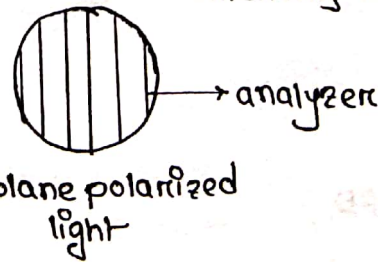 analyzer
plane polarized
light